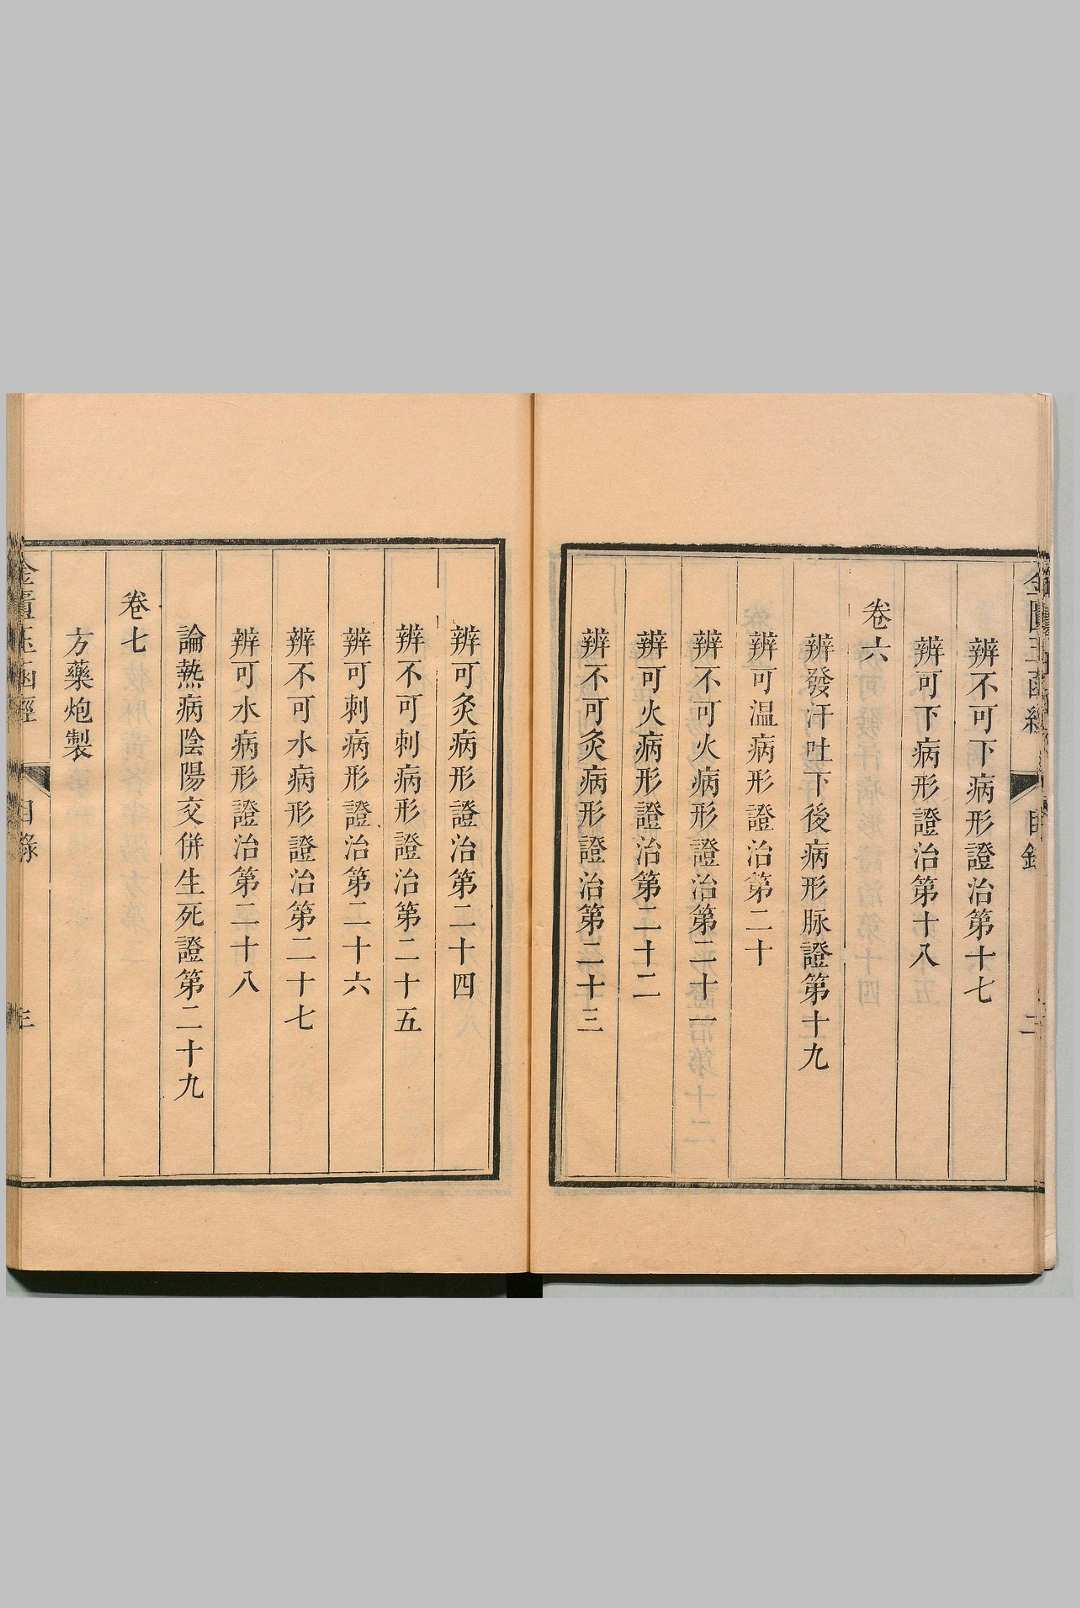 金匱玉函經
目錄
二
辨不可下病形證治第十七
辨可下病形證治第十八
卷六
辨發汗吐下後病形脉證第十九
辨可温病形證治第二十
辨不可火病形證治第二十一
辨可火病形證治第二十二
辨不可灸病形證治第二十三
辨可灸病形證治第二十四
辨不可刺病形證治第二十五
辨可刺病形證治第二十六
辨不可水病形證治第二十七
辨可水病形證治第二十八
論熱病陰陽交併生死證第二十九
卷七
方藥炮製
金匱玉函經
目錄
三